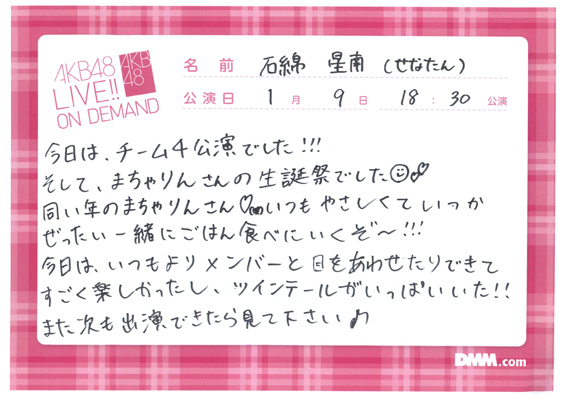 AKB48
LIVE!!
ON DEMAND
AKB
48
名前 石綿 星南 (せなたん)
公演日 1月 9日 18:30 公演
今日は、チーム4公演でした!!!
そして、まちゃりんさんの生誕祭でした
同い年のまちゃりんさん いつもやさしくていつか
ぜったい一緒にごはん食べにいくぞ〜!!!
今日は、いつもよりメンバーと目をあわせたりできて
すごく楽しかったし、ツインテールがいっぱいいた!!
また次も出演できたら見て下さい♪
DMM.com